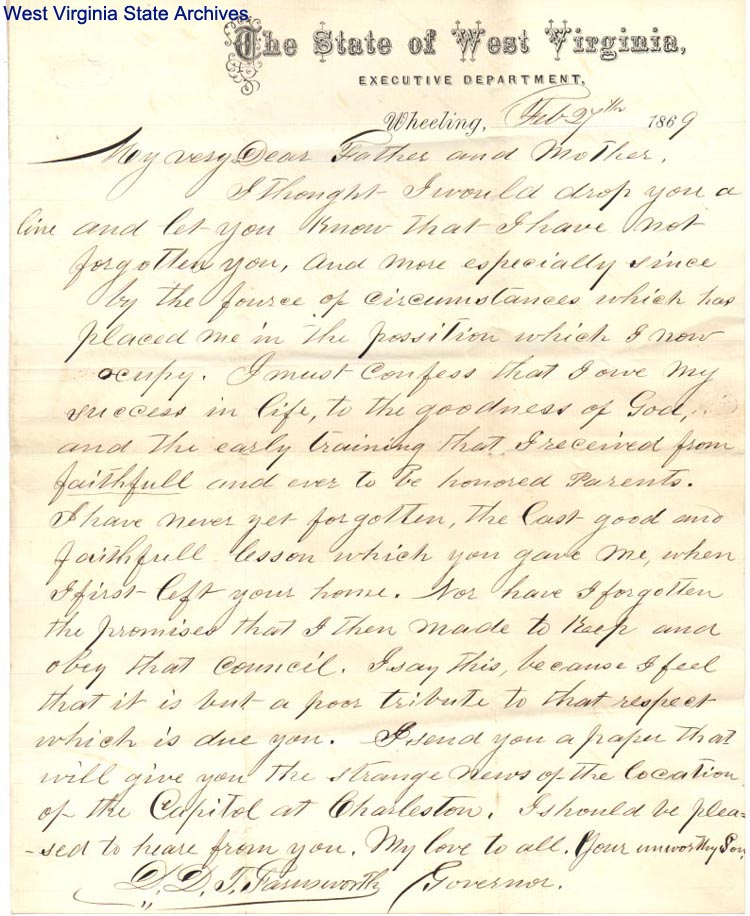 West Virginia State Archives
The State of West Virginia,
EXECUTIVE DEPARTMENT,
Wheeling, Feb 27th 1869
My very Dear Father and Mother.
I thought I would drop you a
line and let you know that I have not
forgotten you, and more especially since
by the fource of circumstances which has
placed me in the possition which I now
ocupy. I must confess that I owe my
success in life, to the goodness of God,
and the early training that I received from
faithfull and ever to be honored Parents.
I have never yet forgotten, the last good and
faithfull lesson which you gave me, when
I first left your home. Nor have I forgotten
the promises that I then made to keep and
obey that council. I say this, because I feel
that it is but a poor tribute to that respect
which is due you. I send you a paper that
will give you the strange news of the location
of the Capitol at Charleston. I should be plea-
-sed to heare from you. My love to all. Your unworthy Son
D. D. T. Farnsworth Governor.